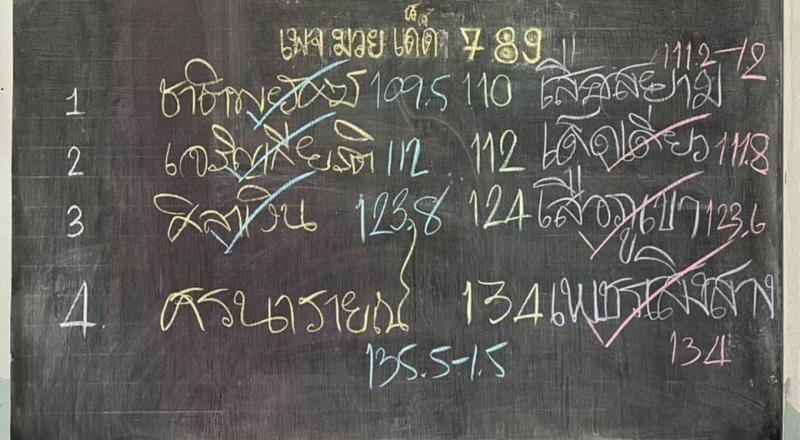 เพจ มวย เด็ด 789
1 ชาติพยัคฆ์ 109.5 110 เสือสยาม 111.2-1.2
2 เจริญเกียรติ 112 112 เด็ดเดี่ยว 111.8
3 ศิลาเงิน 123.8 124 เสือภูเขา 123.6
4. ศรนารายณ์ 134 เพชรเสิงสาง
135.5-1.5 134